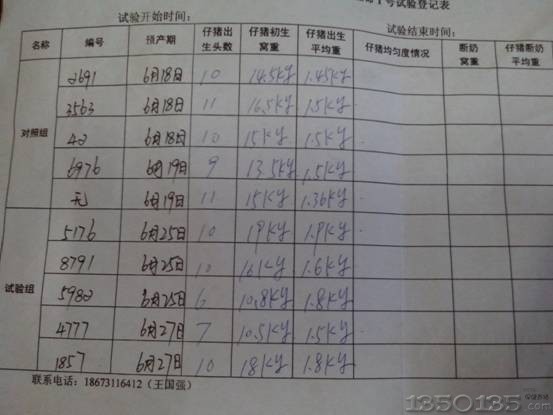 1号试验登记表
试验开始时间： 试验结束时间：
名称 编号 预产期 仔猪出生头数 仔猪初生窝重 仔猪出生平均重 仔猪均匀度情况 断奶窝重 仔猪断奶平均重
对照组
2691 6月18日 10 14.5kg 1.45kg
3563 6月18日 11 16.5kg 1.5kg
42 6月18日 10 15kg 1.5kg
6976 6月19日 9 13.5kg 1.5kg
无 6月19日 11 15kg 1.36kg
试验组
5176 6月25日 10 19kg 1.9kg
8791 6月25日 10 16kg 1.6kg
5982 6月25日 6 10.8kg 1.8kg
4777 6月27日 7 10.5kg 1.5kg
1857 6月27日 10 18kg 1.8kg
联系电话：18673116412（王国强）
1350135.com